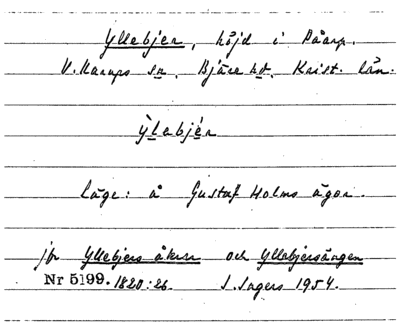 Yllebjer, höjd i Påarp.
V. Karups sn. Bjäre hd. Krist. län.
ỳlebjér
Läge: å Gustaf Holms ägor.
jfr Yllebjers åkrar och Yllebjersängen
Nr 5199. 1820:26. I. Ingers 1954.